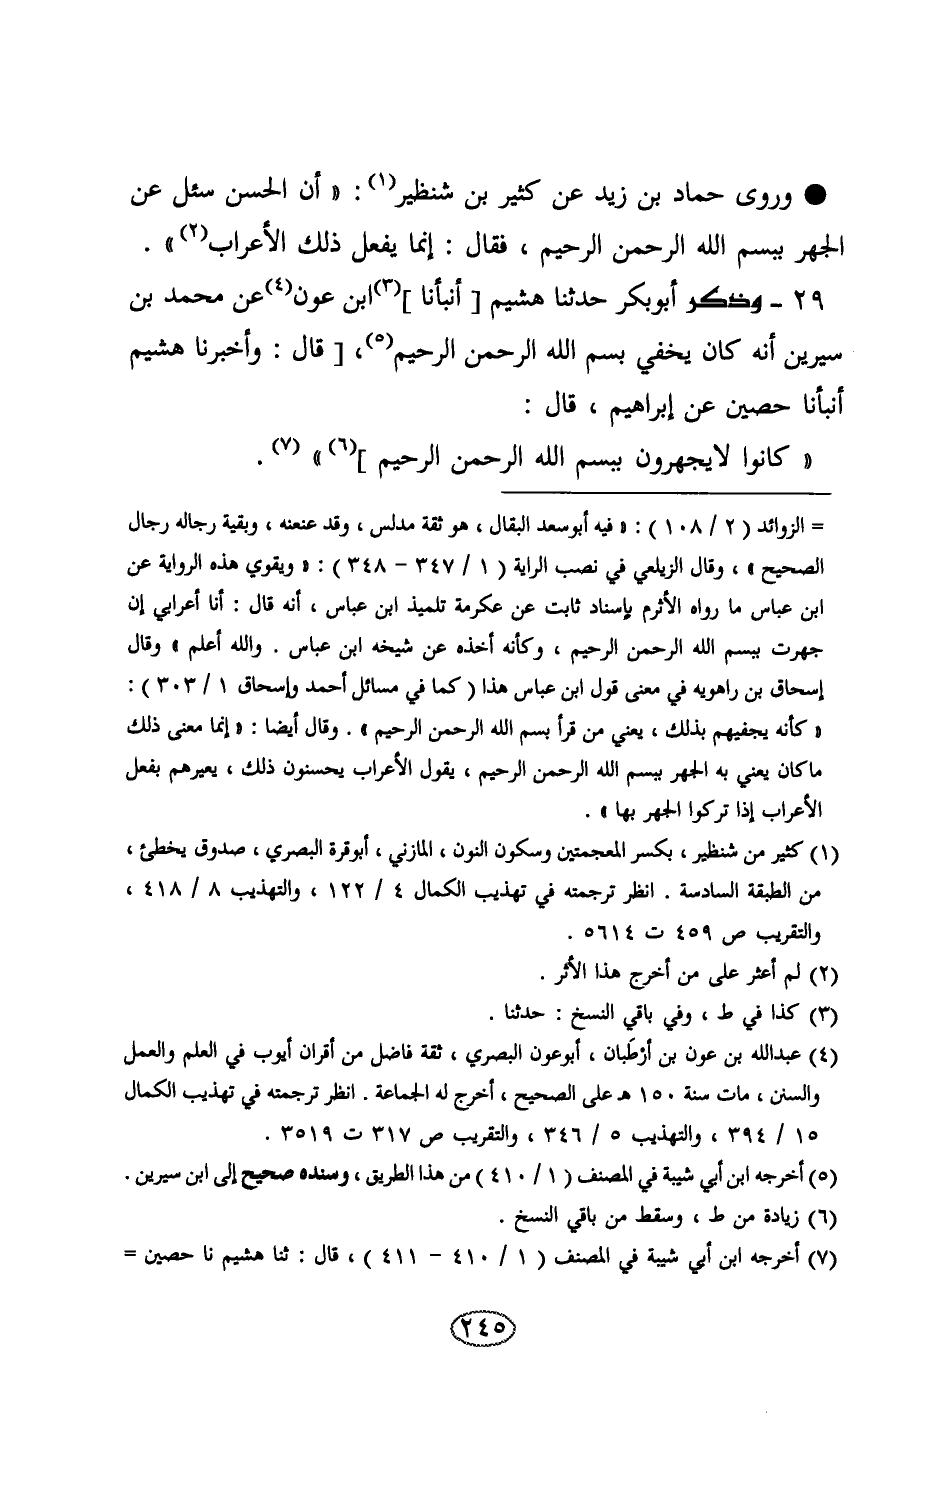 ● وروى حماد بن زيد عن كثير بن شنظير(١) : « أن الحسن سئل عن
الجهر ببسم الله الرحمن الرحيم ، فقال : إنما يفعل ذلك الأعراب(٢) » .
٢٩ ـ وذكر أبوبكر حدثنا هشيم [ أنبأنا ](٣) ابن عون(٤) عن محمد بن
سيرين أنه كان يخفي بسم الله الرحمن الرحيم(٥)، [ قال : وأخبرنا هشيم
أنبأنا حصين عن إبراهيم ، قال :
« كانوا لايجهرون ببسم الله الرحمن الرحيم ](٦) » (٧) .
= الزوائد ( ٢ / ١٠٨ ) : « فيه أبوسعد البقال ، هو ثقة مدلس ، وقد عنعنه ، وبقية رجاله رجال
الصحيح » ، وقال الزيلعي في نصب الراية ( ١ / ٣٤٧ – ٣٤٨ ) : « ويقوي هذه الرواية عن
ابن عباس ما رواه الأثرم بإسناد ثابت عن عكرمة تلميذ ابن عباس ، أنه قال : أنا أعرابي إن
جهرت ببسم الله الرحمن الرحيم ، وكأنه أخذه عن شيخه ابن عباس . والله أعلم » وقال
إسحاق بن راهويه في معنى قول ابن عباس هذا ( كما في مسائل أحمد وإسحاق ١ / ٣٠٣ ) :
« كأنه يجفيهم بذلك ، يعني من قرأ بسم الله الرحمن الرحيم » . وقال أيضا : « إنما معنى ذلك
ماكان يعني به الجهر ببسم الله الرحمن الرحيم ، يقول الأعراب يحسنون ذلك ، يعيرهم بفعل
الأعراب إذا تركوا الجهر بها » .
(١) كثير من شنظير ، بكسر المعجمتين وسكون النون ، المازني ، أبوقرة البصري ، صدوق يخطئ ،
من الطبقة السادسة . انظر ترجمته في تهذيب الكمال ٤ / ١٢٢ ، والتهذيب ٨ / ٤١٨ ،
والتقريب ص ٤٥٩ ت ٥٦١٤ .
(٢) لم أعثر على من أخرج هذا الأثر .
(٣) كذا في ط ، وفي باقي النسخ : حدثنا .
(٤) عبدالله بن عون بن أرْطَبان ، أبوعون البصري ، ثقة فاضل من أقران أيوب في العلم والعمل
والسنن ، مات سنة ١٥٠ هـ على الصحيح ، أخرج له الجماعة . انظر ترجمته في تهذيب الكمال
١٥ / ٣٩٤ ، والتهذيب ٥ / ٣٤٦ ، والتقريب ص ٣١٧ ت ٣٥١٩ .
(٥) أخرجه ابن أبي شيبة في المصنف ( ١ / ٤١٠ ) من هذا الطريق ، وسنده صحيح إلى ابن سيرين .
(٦) زيادة من ط ، وسقط من باقي النسخ .
(٧) أخرجه ابن أبي شيبة في المصنف ( ١ / ٤١٠ – ٤١١ ) ، قال : ثنا هشيم نا حصين =
٢٤٥